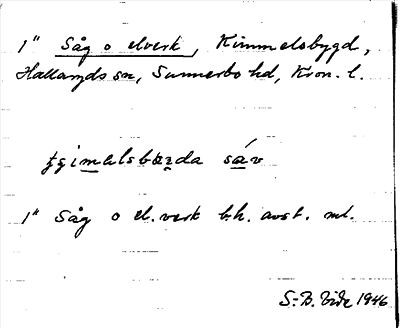 1" Såg o elverk, Kimmelsbygd,
Hallaryds sn, Sunnerbo hd, Kron. l.
sáv
1" Såg o el.verk b.h. avst. ml.
S-B. Vide 1946